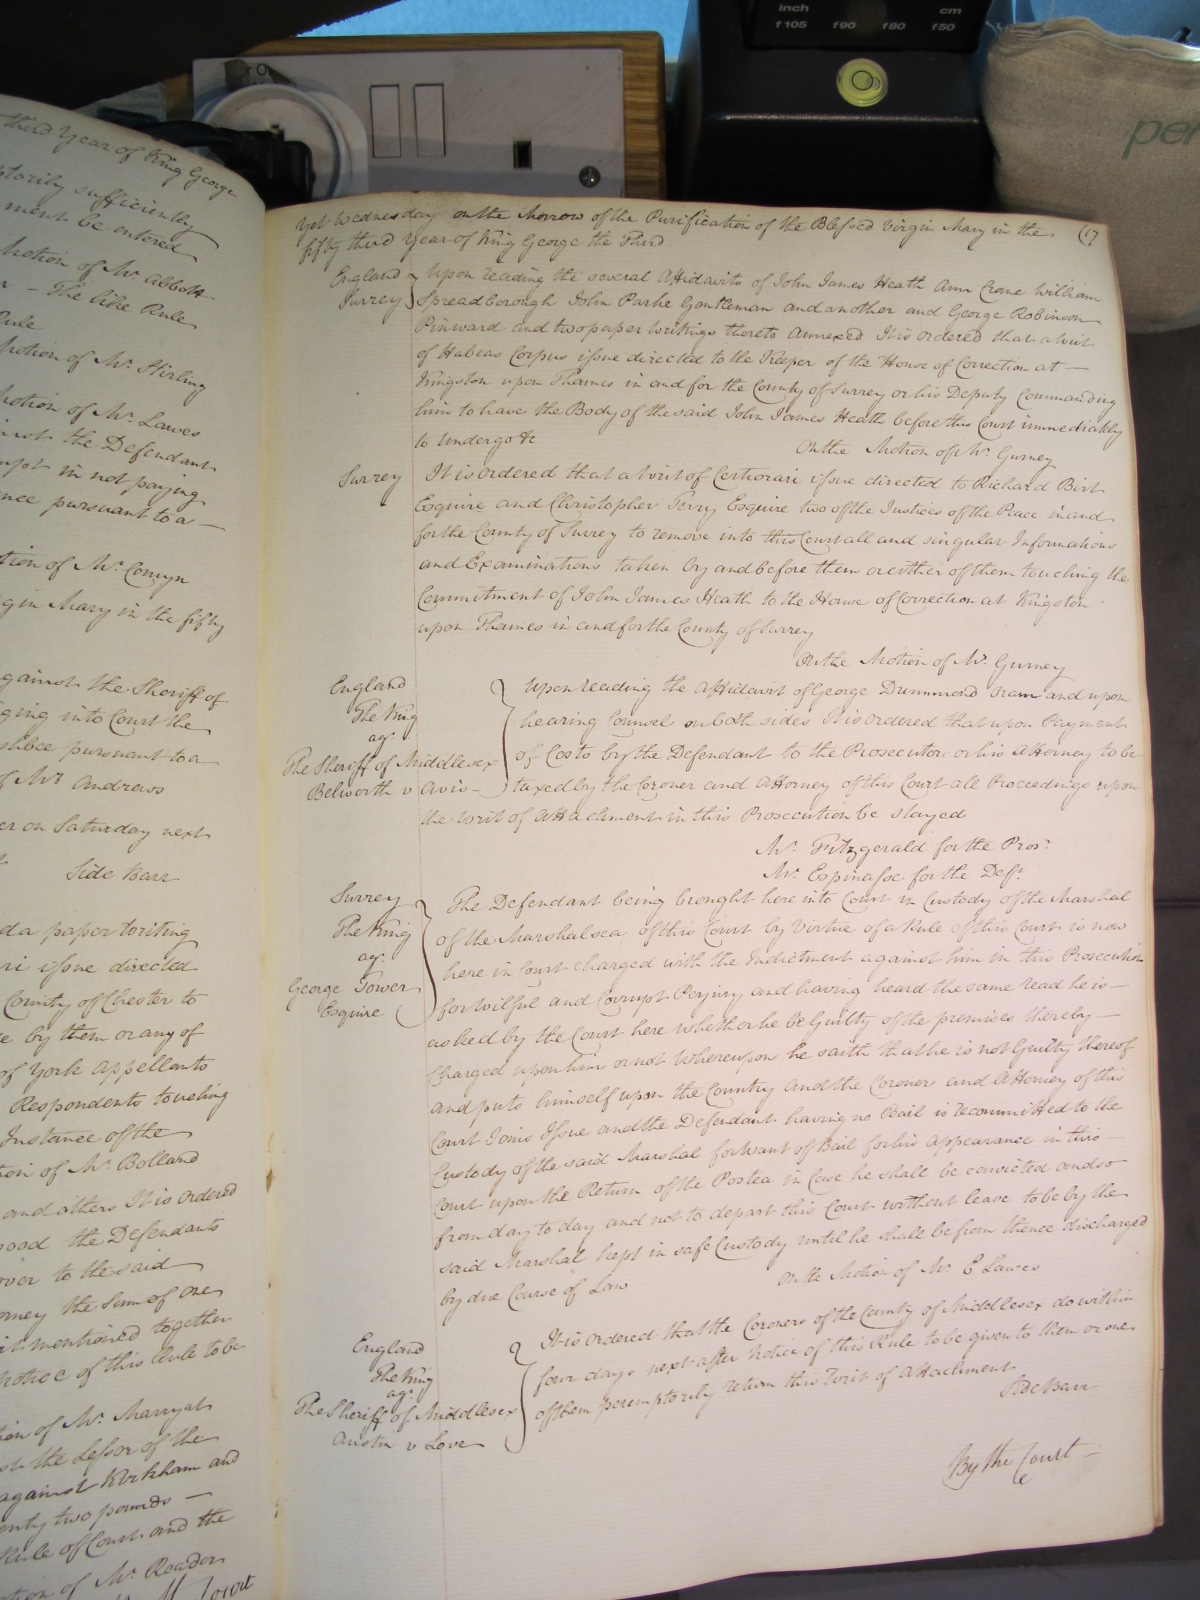 inch cm
f105 f90 f80 f50
per
third Year of King George
sufficiently
ment be entered
Motion of Mr. Abbott
The like Rule
Rule
Motion of Mr. Stirling
Motion of Mr. Lawes
the Defendant
in not paying
pursuant to a
tion of Mr. Comyn
gin Mary in the fifty
gainst the Sheriff of
ging into Court the
pursuant to a
of Mr. Andrews
er on Saturday next
Side Barr
d a paper writing
ri issue directed
County of Chester to
e by them or any of
of York Appellants
Respondents touching
Instance of the
tion of Mr. Bolland
and others It is ordered
the Defendants
over to the said
orney the Sum of one
mentioned together
notice of this Rule to be
tion of Mr. Marryat
the Lessor of the
against Kirkham and
enty two pounds
Rule of Court and the
otion of Mr. Reader
Court
17
Yet Wednesday on the Morrow of the Purification of the Blessed Virgin Mary in the
fifty third Year of King George the Third
England Upon reading the several Affidavits of John James Heath Ann Crane William
Surrey Spreadborough John Parke Gentleman and another and George Robinson
Pinward and two paper Writings thereto Annexed It is ordered that a Writ
of Habeas Corpus issue directed to the Keeper of the House of Correction at
Kingston upon Thames in and for the County of Surrey or his Deputy Commanding
him to have the Body of the said John James Heath before this Court immediately
to undergo &c
On the Motion of Mr. Gurney
Surrey It is ordered that a Writ of Certiorari issue directed to Richard Birt
Esquire and Christopher Terry Esquire two of the Justices of the Peace in and
for the County of Surrey to remove into this Court all and singular Informations
and Examinations taken by and before them or either of them touching the
Commitment of John James Heath to the House of Correction at Kingston
upon Thames in and for the County of Surrey
On the Motion of Mr. Gurney
England
The King
agt.
The Sheriff of Middlesex
Belworth v Avis
Upon reading the Affidavit of George Drummond Oram and upon
hearing Counsel on both sides It is ordered that upon Payment
of Costs by the Defendant to the Prosecutor or his Attorney to be
taxed by the Coroner and Attorney of this Court all Proceedings upon
the Writ of Attachment in this Prosecution be stayed
Mr. Fitzgerald for the Prosr.
Mr. Espinasse for the Deft.
Surrey
The King
agt.
George Tower
Esquire
The Defendant being brought here into Court in Custody of the Marshal
of the Marshalsea of this Court by Virtue of a Rule of this Court is now
here in Court charged with the Indictment against him in this Prosecution
for Wilful and Corrupt Perjury and having heard the same read he is
asked by the Court here whether he be Guilty of the premises thereby
Charged upon him or not Whereupon he saith that he is not Guilty thereof
and puts himself upon the Country and the Coroner and Attorney of this
Court Joins Issue and the Defendant having no Bail is recommitted to the
Custody of the said Marshal for Want of Bail for his Appearance in this
Court upon the Return of the Postea in Case he shall be convicted and so
from day to day and not to depart this Court without leave to be by the
said Marshal kept in safe Custody until he shall be from thence discharged
by due Course of Law
On the Motion of Mr. E Lawes
England
The King
agt.
The Sheriff of Middlesex
Austin v Love
It is Ordered that the Coroners of the County of Middlesex do within
four days next after Notice of this Rule to be given to them or one
of them peremptorily return this Writ of Attachment
Side Barr
By the Court